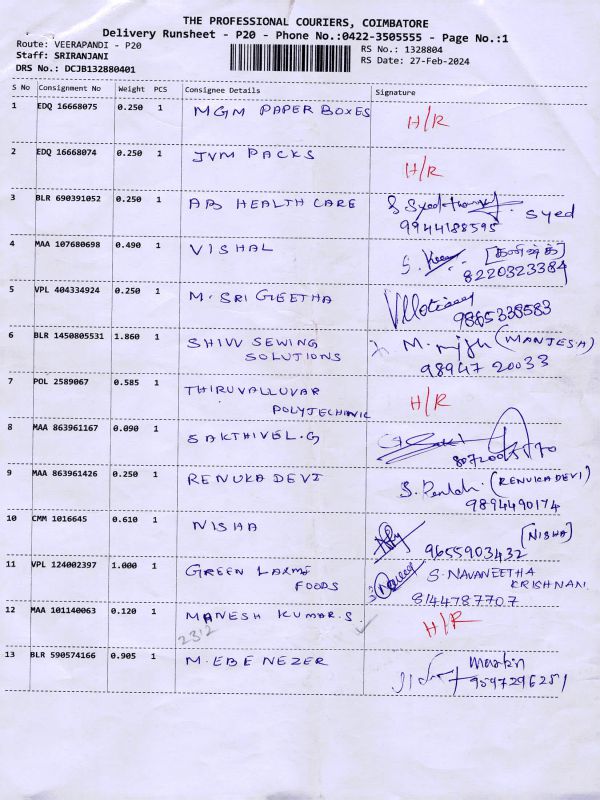 THE PROFESSIONAL COURIERS, COIMBATORE
Delivery Runsheet - P20 - Phone No.:0422-3505555 - Page No.:1
Route: VEERAPANDI - P20
RS No.: 1328804
Staff: SRIRANJANI
RS Date: 27-Feb-2024
DRS No.: DCJB132880401
S No Consignment No Weight PCS Consignee Details Signature
1 EDQ 16668075 0.250 1 MGM PAPER BOXES H/R
2 EDQ 16668074 0.250 1 JVM PACKS H/R
3 BLR 690391052 0.250 1 AB HEALTH CARE Syed
9944188595
4 MAA 107680698 0.490 1 VISHAL
8220323384
5 VPL 404334924 0.250 1 M. SRI GEETHA
9865338583
6 BLR 1450805531 1.860 1 SHIVV SEWING (MANJESA)
SOLUTIONS 98947 20033
7 POL 2589067 0.585 1 THIRUVALLUVAR H/R
POLYTECHINIC
8 MAA 863961167 0.090 1 SAKTHIVEL.G
9 MAA 863961426 0.250 1 RENUKA DEVI (RENUKA DEVI)
9894490174
10 CMM 1016645 0.610 1 NISHA [NISHA]
9655903432
11 VPL 124002397 1.000 1 GREEN LAXMI S. NAVANEETHA
FOODS KRISHNAN
8144787707
12 MAA 101140063 0.120 1 MANESH KUMAR.S. H/R
2312
13 BLR 590574166 0.905 1 M. EBENEZER Martin
9597296251